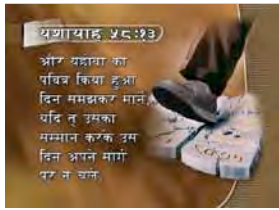 यशायाह ५८:१३
और यहोवा का
पवित्र किया हुआ
दिन समझकर माने,
यदि तू उसका
सम्मान करके उस
दिन अपने मार्ग
पर न चले,